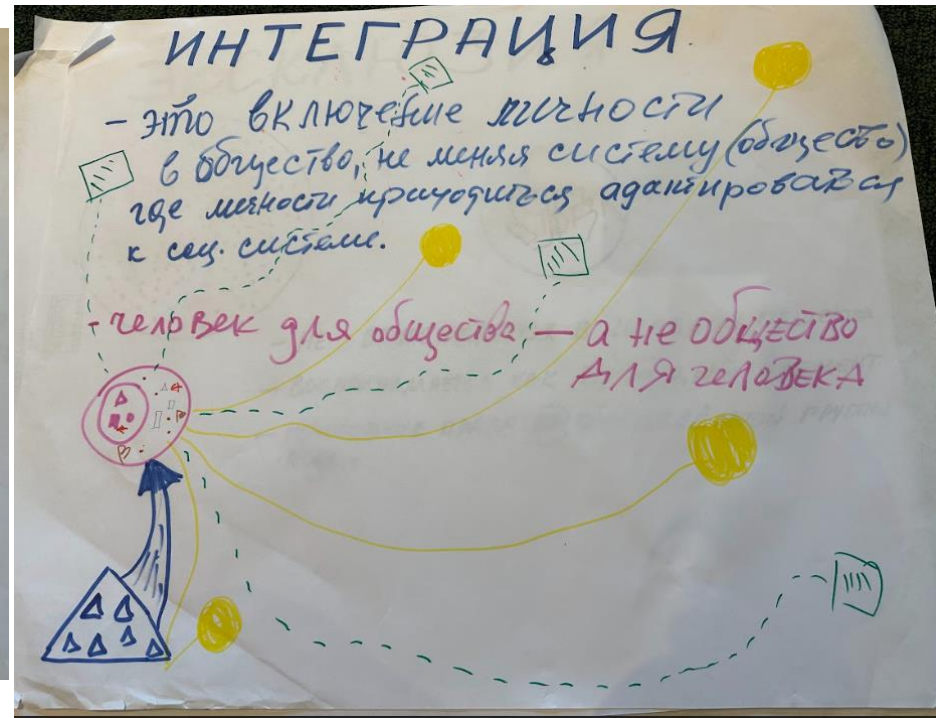 ИНТЕГРАЦИЯ
- это включение личности
в общество, не меняя систему (общество)
где личности приходиться адатироваться
к соц. системе.
- человек для общества — а не общество
для человека